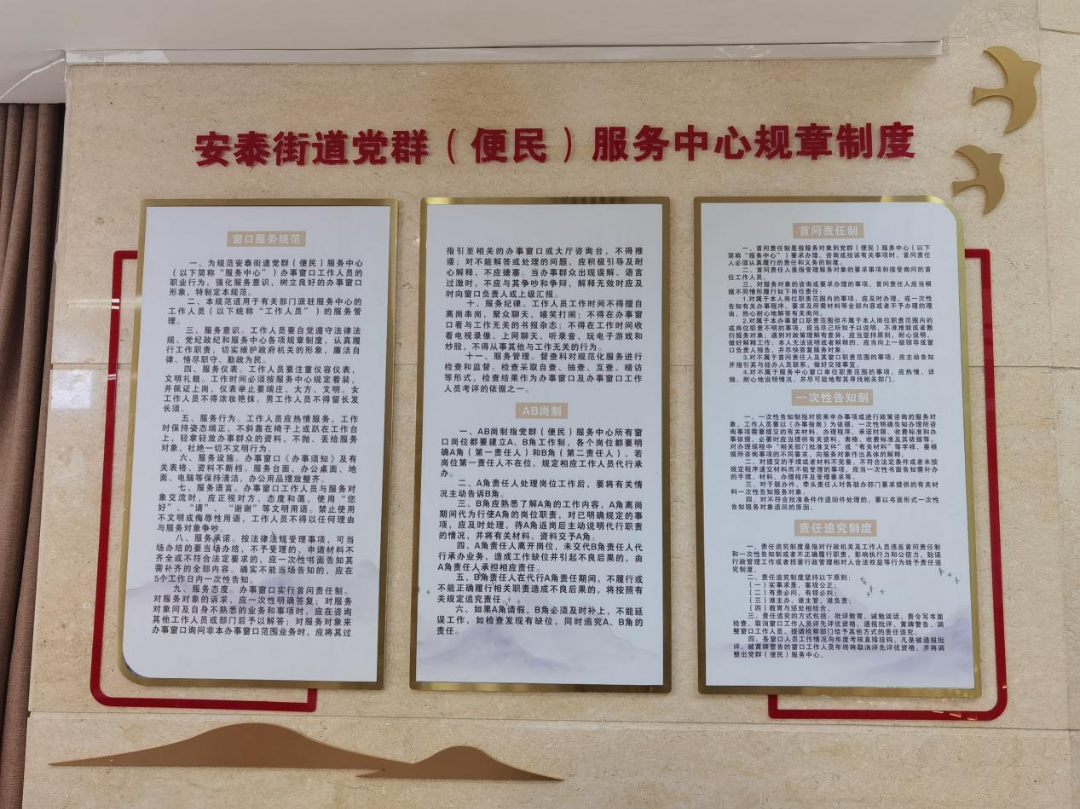 安泰街道党群（便民）服务中心规章制度
窗口服务规范
一、为规范安泰街道党群（便民）服务中心
（以下简称“服务中心”）办事窗口工作人员的
职业行为，强化服务意识，树立良好的办事窗口
形象，特制定本规范。
二、本规范适用于有关部门派驻服务中心的
工作人员（以下统称“工作人员”）的服务管
理。
三、服务意识。工作人员要自觉遵守法律法
规、党纪政纪和服务中心各项规章制度，认真履
行工作职责，切实维护政府机关的形象，廉洁自
律、恪尽职守、勤政为民。
四、服务仪表。工作人员要注重仪容仪表，
文明礼貌。工作时间必须按服务中心规定着装，
并保证上岗，仪表举止要端庄、大方、文明。女
工作人员不得浓妆艳抹，男工作人员不得留长发
长须。
五、服务行为。工作人员应热情服务，工作
时保持姿态端正，不斜靠在椅子上或趴在工作台
上，轻拿轻放办事群众的资料，不抛、丢给服务
对象，杜绝一切不文明行为。
六、服务设施。办事窗口《办事须知》及有
关表格、资料不断档。服务台面、办公桌面、地
面、电脑等保持清洁，办公用品摆放整齐。
七、服务语言。办事窗口工作人员与服务对
象交流时，应正视对方、态度和蔼，使用“您
好”、“请”、“谢谢”等文明用语。禁止使用
不文明或侮辱性用语，工作人员不得以任何理由
与服务对象争吵。
八、服务承诺。按法律法规受理事项，可当
场办结的要当场办结，不予受理的、申请材料不
齐全或不符合法定要求的，应一次性书面告知其
需补齐的全部内容。确实不能当场告知的，应在
5个工作日内一次性告知。
九、服务态度。办事窗口实行首问责任制。
对服务对象的诉求，应一次性明确答复；对服务
对象问及自身不熟悉的业务和事项时，应在咨询
其他工作人员或部门后予以解答；对服务对象来
办事窗口询问非本办事窗口范围业务时，应将其过
指引至相关的办事窗口或大厅咨询台，不得推
诿；对不能解答或处理的问题，应积极引导及耐
心解释，不应搪塞。当办事群众出现误解、语言
过激时，不应与其争吵和争辩，解释无效时应及
时向窗口负责人或上级汇报。
十、服务纪律。工作人员工作时间不得擅自
离岗串岗，聚众聊天，嬉笑打闹；不得在办事窗
口看与工作无关的书报杂志；不得在工作时间收
看电视录像、上网聊天、听录音、玩电子游戏和
炒股，不得从事其他与工作无关的行为。
十一、服务管理。督查科对规范化服务进行
检查和监督。检查采取自查、抽查、互查、暗访
等形式，检查结果作为办事窗口及办事窗口工作
人员考评的依据之一。
AB岗制
一、AB岗制指党群（便民）服务中心所有窗
口岗位都要建立A、B角工作制，各个岗位都要明
确A角（第一责任人）和B角（第二责任人），若
岗位第一责任人不在位，规定相应工作人员代行承
办。
二、A角责任人处理岗位工作后，要将有关情
况主动告诉B角。
三、B角应熟悉了解A角的工作内容，A角离岗
期间代为行使A角的岗位职责，对已明确规定的事
项，应及时处理，待A角返岗后主动说明代行职责
的情况，并将有关材料、资料交予A角。
四、A角责任人离开岗位，未交代B角责任人代
行承办业务，造成工作缺位并引起不良后果的，由
A角责任人承担相应责任。
五、B角责任人在代行A角责任期间，不履行或
不能正确履行相关职责造成不良后果的，将按照有
关规定追究责任。
六、如果A角请假，B角必须及时补上，不能延
误工作，如检查发现有缺位，同时追究A、B角的
责任。
首问责任制
一、首问责任制是指服务对象到党群（便民）服务中心（以下
简称“服务中心”）要求办理、咨询或投诉有关事项时，首问责任
人必须认真履行的责任和义务的制度。
二、首问责任人是指受理服务对象的要求事项和接受询问的首
位工作人员。
三、对服务对象的咨询或要求办理的事项，首问责任人应当根
据不同情形履行如下岗位责任：
1.对属于本人岗位职责范围内的事项，应及时办理，或一次性
告知有关办事程序、要求及所需材料等全部内容或者不予办理的理
由，热心耐心地解答有关询问。
2.对属于本办事窗口职责范围但不属于本人岗位职责范围内的
或岗位职责不明的事项，应当尽己所知予以说明，不准推脱或者敷
衍服务对象；遇到对政策理解有差异，应当坚持原则、耐心说明，
做好解释工作；本人无法说明或者解释的，应当向上一级领导或窗
口负责人报告，并尽快答复服务对象
3.对不属于首问责任人及其窗口职责范围的事项，应主动告知
并指引其与经办人员联系，做好交接事宜。
4.对不属于服务中心窗口单位职责范围的事项，应热情、详
细、耐心地说明情况，并尽可能地帮其寻找相关部门。
一次性告知制
一、一次性告知制指对前来申办事项或进行政策咨询的服务对
象，工作人员要以《办事指南》为依据，一次性明确告知办理所咨
询事项需要提交的有关材料、办理程序、承诺时限、收费标准和办
事依据。必要时应当提供有关资料、表格、收费标准及其依据等。
对办理规程中“相关部门批准文件”或“有关材料”等字样，要根
据所咨询事项的不同要求，向服务对象作出具体的解释。
二、对提交的手续或者材料不完备、不符合法定条件或者未按
规定程序递交材料而不能受理的事项，应当一次性书面告知需补办
的手续、材料、办理程序及受理要求等。
三、对于联办件，牵头责任人对各联办部门要求提供的有关材
料一次性告知服务对象。
四、对不符合批准条件作退回件处理的，要以书面形式一次性
告知服务对象退回的原因。
责任追究制度
一、责任追究制度是指对行政机关及工作人员违反首问责任制
和一次性告知制或者不正确履行职责，影响执行力和公信力，贻误
行政管理工作或者损害行政管理相对人合法权益等行为给予责任追
究制度。
二、责任追究制度坚持以下原则：
（一）实事求是，客观公正；
（二）有责必问，有错必纠；
（三）谁主办、谁主管，谁负责；
（四）教育与惩处相结合；
三、责任追究的方式包括：批评教育、诫勉谈话、责令写书面
检查、取消窗口工作人员评先评优资格、通报批评、黄牌警告、调
整窗口工作人员，提请检察部门给予其他方式的责任追究；
四、各窗口人员工作情况与年度考核直接挂钩，凡是被通报批
评、被黄牌警告的窗口工作人员年终将取消评先评优资格，并将调
整出党群（便民）服务中心。